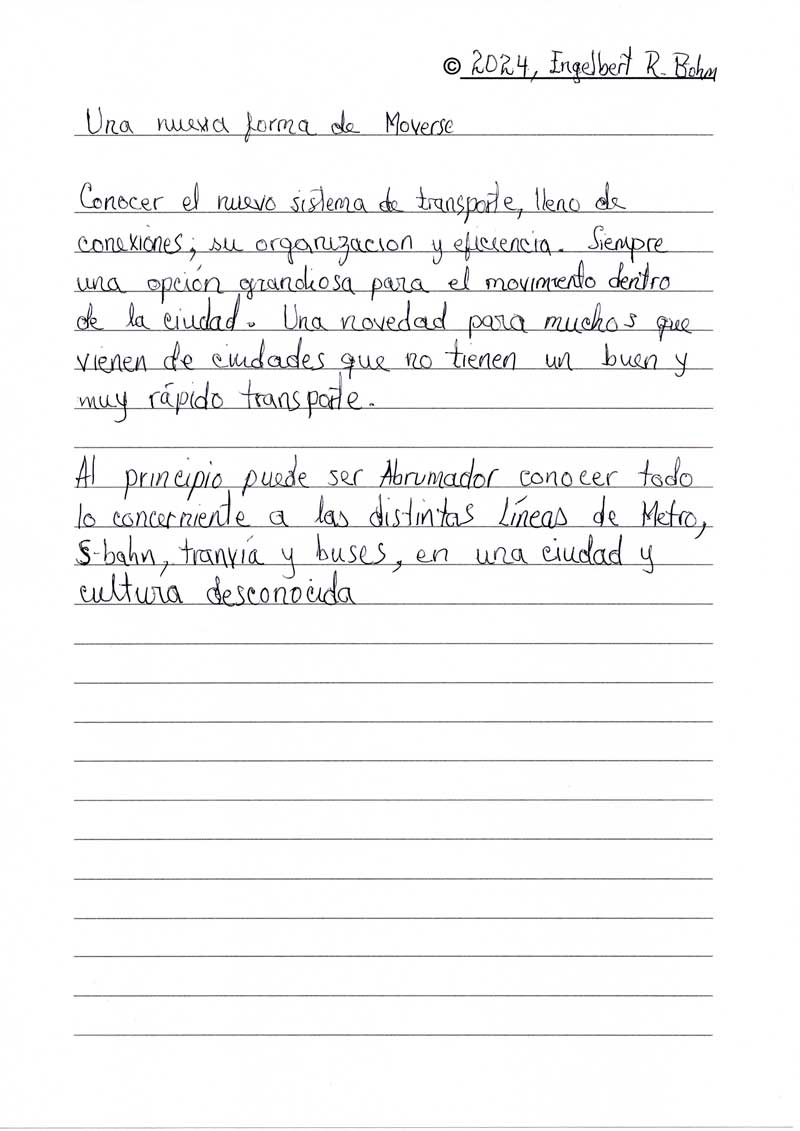 © 2024, Engelbert R. Bohm
Una nueva forma de Moverse
Conocer el nuevo sistema de transporte, lleno de
conexiones; su organizacion y eficiencia. Siempre
una opción grandiosa para el movimiento dentro
de la ciudad. Una novedad para muchos que
vienen de ciudades que no tienen un buen y
muy rápido transporte.
Al principio puede ser Abrumador conocer todo
lo concerniente a las distintas Líneas de Metro,
S-bahn, tranvía y buses, en una ciudad y
cultura desconocida